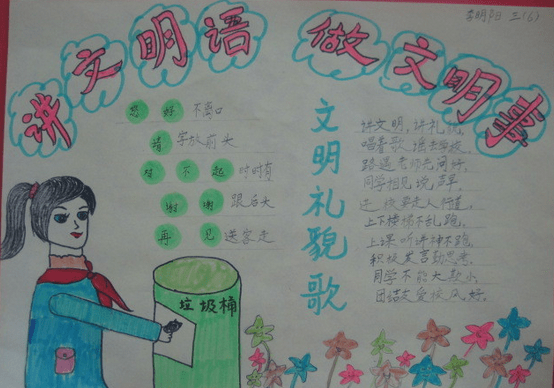 讲文明语 做文明事
李明阳 三(6)
您好不离口
请字放前头
对不起时时有
谢谢跟后头
再见送客走
垃圾桶
文明礼貌歌
讲文明,讲礼貌,
唱着歌 去学校,
路遇老师先问好,
同学相见说声早,
校要走人行道,
上下楼梯不乱跑,
上课听讲神不跑,
积极发言勤思考,
同学不能大欺小,
团结友爱校风好。